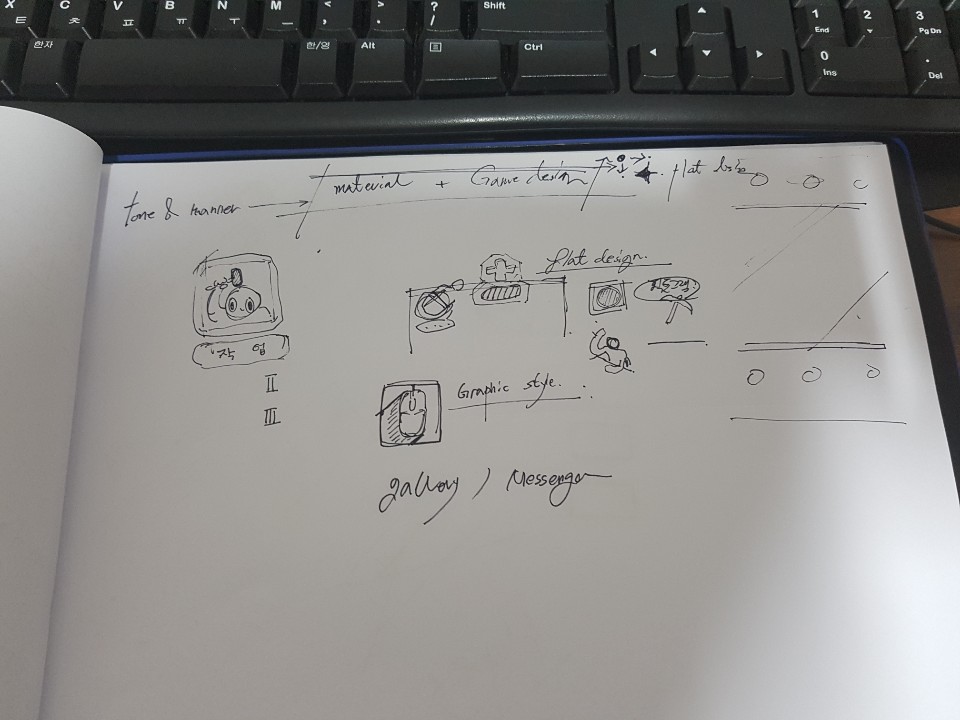 X C V B N M < , > . ? / Shift
ㅌ ㅊ ㅍ ㅠ ㅜ ㅡ
한자 한/영 Alt Ctrl
1 End 2 3 Pg Dn
0 Ins . Del
tone & manner → material + Game design flat
flat design.
작업
II
III
Graphic style.
gallery, Messenger